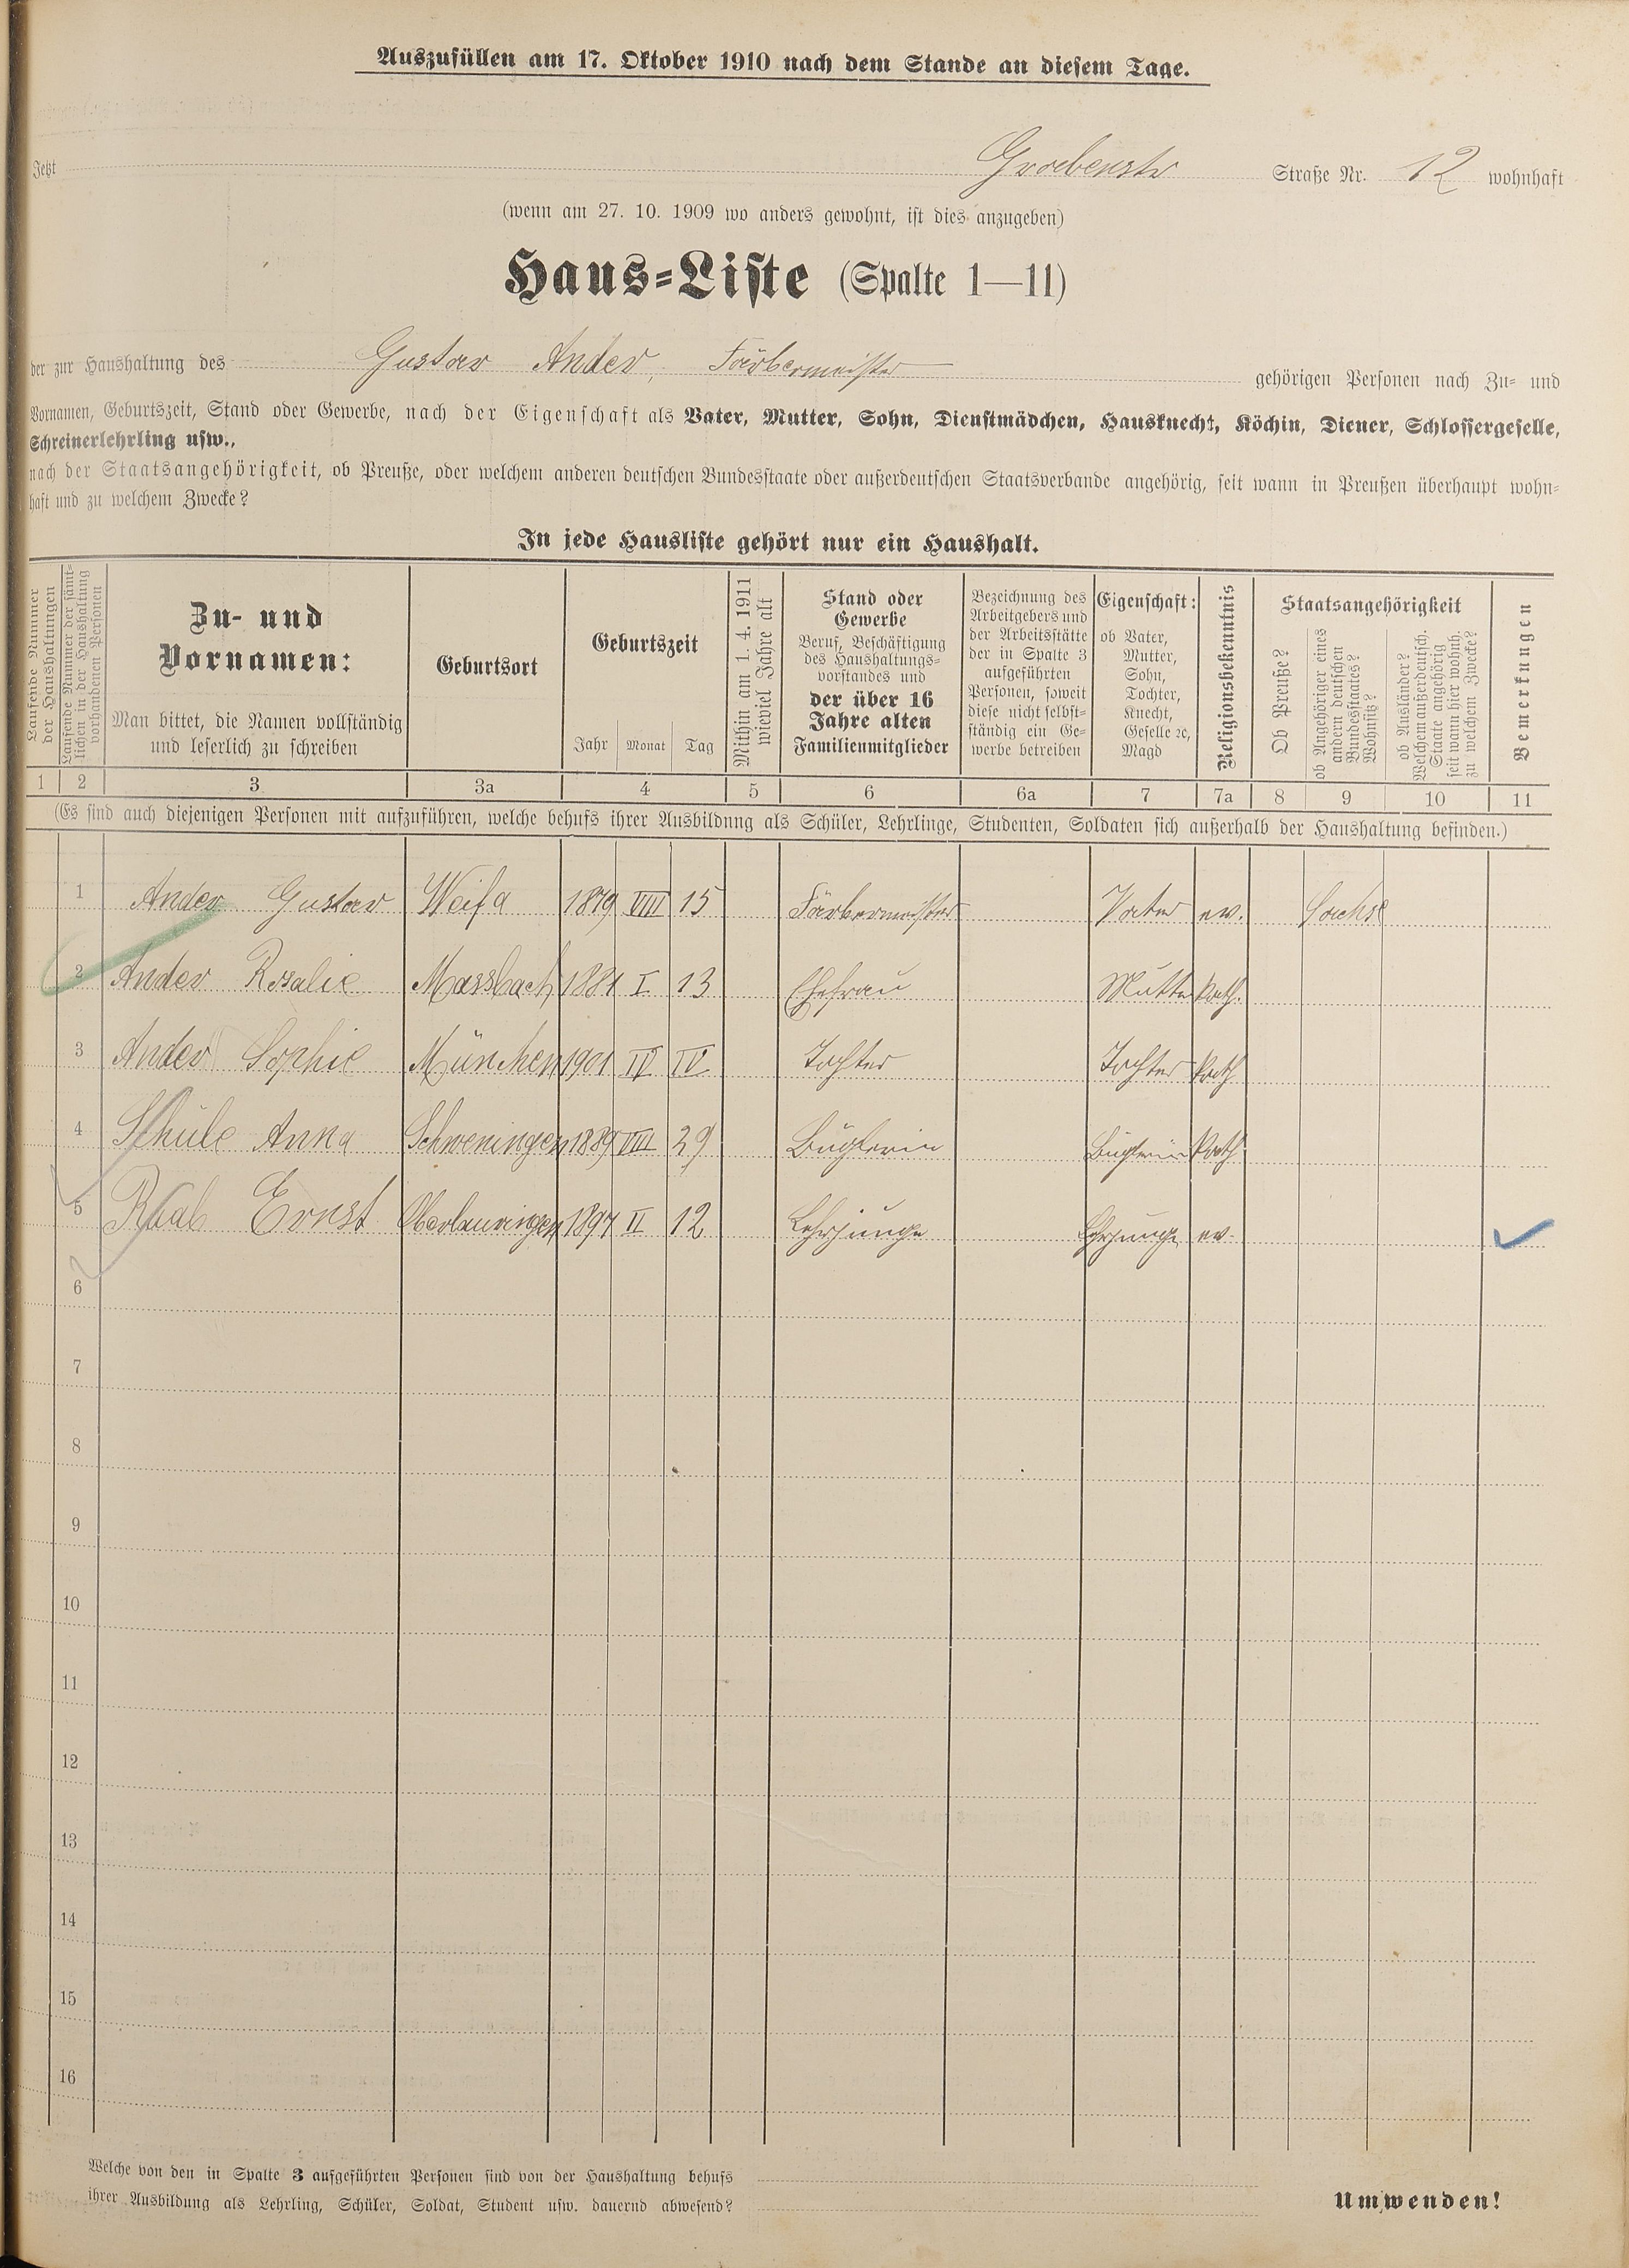 Auszufüllen am 17. Oktober 1910 nach dem Stande an diesem Tage.
Jetzt Grabenstr Straße Nr. 12 wohnhaft
(wenn am 27. 10. 1909 wo anders gewohnt, ist dies anzugeben)
Haus-Liste (Spalte 1—11)
der zur Haushaltung des Gustav Ander, Färbermeister gehörigen Personen nach Zu- und
Vornamen, Geburtszeit, Stand oder Gewerbe, nach der Eigenschaft als Vater, Mutter, Sohn, Dienstmädchen, Hausknecht, Köchin, Diener, Schlossergeselle,
Schreinerlehrling usw.,
nach der Staatsangehörigkeit, ob Preuße, oder welchem anderen deutschen Bundesstaate oder außerdeutschen Staatsverbande angehörig, seit wann in Preußen überhaupt wohn-
haft und zu welchem Zwecke?
In jede Hausliste gehört nur ein Haushalt.
Laufende Nummer
der Haushaltungen
Laufende Nummer der sämt-
lichen in der Haushaltung
vorhandenen Personen
Zu- und
Vornamen:
Man bittet, die Namen vollständig
und leserlich zu schreiben
Geburtsort
Geburtszeit
Jahr Monat Tag
Mithin am 1. 4. 1911
wieviel Jahre alt
Stand oder
Gewerbe
Beruf, Beschäftigung
des Haushaltungs-
vorstandes und
der über 16
Jahre alten
Familienmitglieder
Bezeichnung des
Arbeitgebers und
der Arbeitsstätte
der in Spalte 3
aufgeführten
Personen, soweit
diese nicht selbst-
ständig ein Ge-
werbe betreiben
Eigenschaft:
ob Vater,
Mutter,
Sohn,
Tochter,
Knecht,
Geselle ꝛc,
Magd
Religionsbekenntnis
Staatsangehörigkeit
Ob Preuße?
ob Angehöriger eines
andern deutschen
Bundesstaates?
Wohnsitz?
ob Ausländer?
Welchem außerdeutsch.
Staate angehörig
seit wann hier wohnh.
zu welchem Zwecke?
Bemerkungen
1 2 3 3a 4 5 6 6a 7 7a 8 9 10 11
(Es sind auch diejenigen Personen mit aufzuführen, welche behufs ihrer Ausbildung als Schüler, Lehrlinge, Studenten, Soldaten sich außerhalb der Haushaltung befinden.)
1 Ander Gustav Weifa 1879 VIII 15 Färbermeister Vater ev. Sachse
2 Ander Rosalie Massbach 1881 I 13 Ehefrau Mutter Kath.
3 Ander Sophie München 1901 IV IV Tochter Tochter Kath
4 Schüle Anna Schweningen 1889 VIII 29 Büglerin Büglerin Kath
5 Raab Ernst Oberlauringen 1897 II 12 Lehrjunge Lehrjunge ev.
6
7
8
9
10
11
12
13
14
15
16
Welche von den in Spalte 3 aufgeführten Personen sind von der Haushaltung behufs
ihrer Ausbildung als Lehrling, Schüler, Soldat, Student usw. dauernd abwesend?
Umwenden!